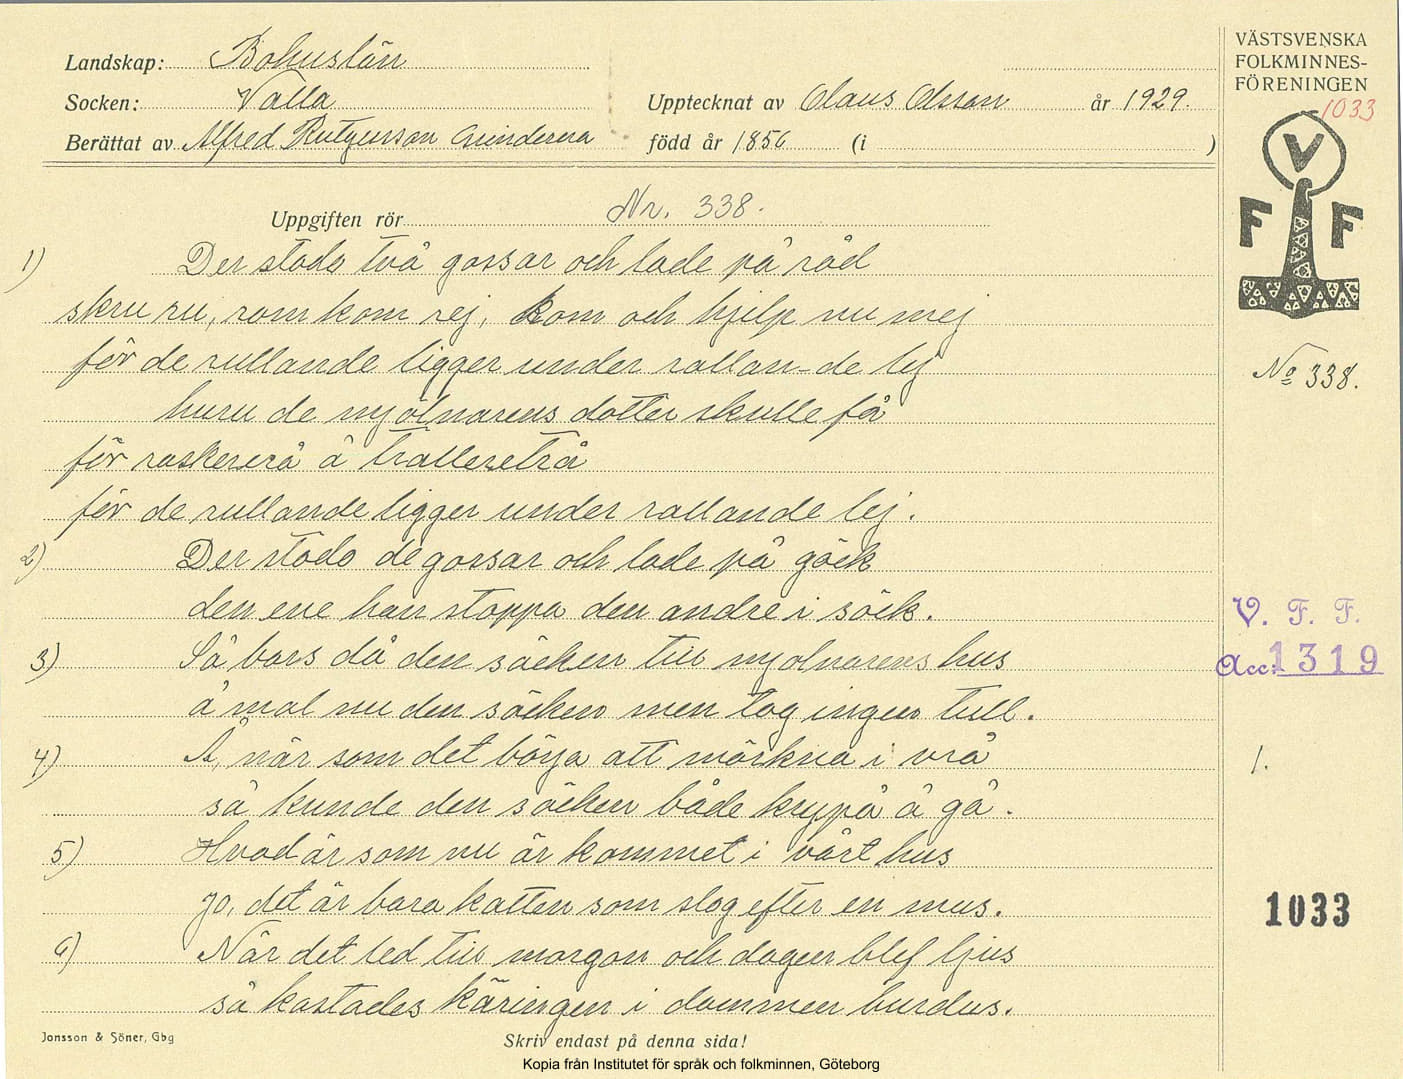 Landskap: Bohuslän
Socken: Valla
Upptecknat av Olaus Olsson år 1929.
Berättat av Alfred Rutgersson
född år 1856 (i )
VÄSTSVENSKA
FOLKMINNES-
FÖRENINGEN
1033
V
F F
Uppgiften rör Nr. 338.
1) Der stodo två gossar och lade på råd
skru ru, rom kom rej, kom och hjelp nu mej
för de rullande ligger under rallan-de lej
huru de mjölnarens dotter skulle få
för raskererå å tralleretrå
för de rullande ligger under rallande lej.
2) Der stodo de gossar och lade på gäck
den ene han stoppa den andre i säck.
3) Så bars då den säcken till mjolnarens hus
å mal nu den säcken men tag ingen tull.
4) Å, när som det börja att mörkna i vrå
så kunde den säcken både krypa å gå.
5) Hvad är som nu är kommet i vårt hus
jo, det är bara katten som slog efter en mus.
6) När det led till morgon och dagen blef ljus
så kastades käringen i dammen burdus.
No 338.
V. F. F.
Acc: 1319
1.
1033
Jonsson & Söner, Gbg
Skriv endast på denna sida!
Kopia från Institutet för språk och folkminnen, Göteborg